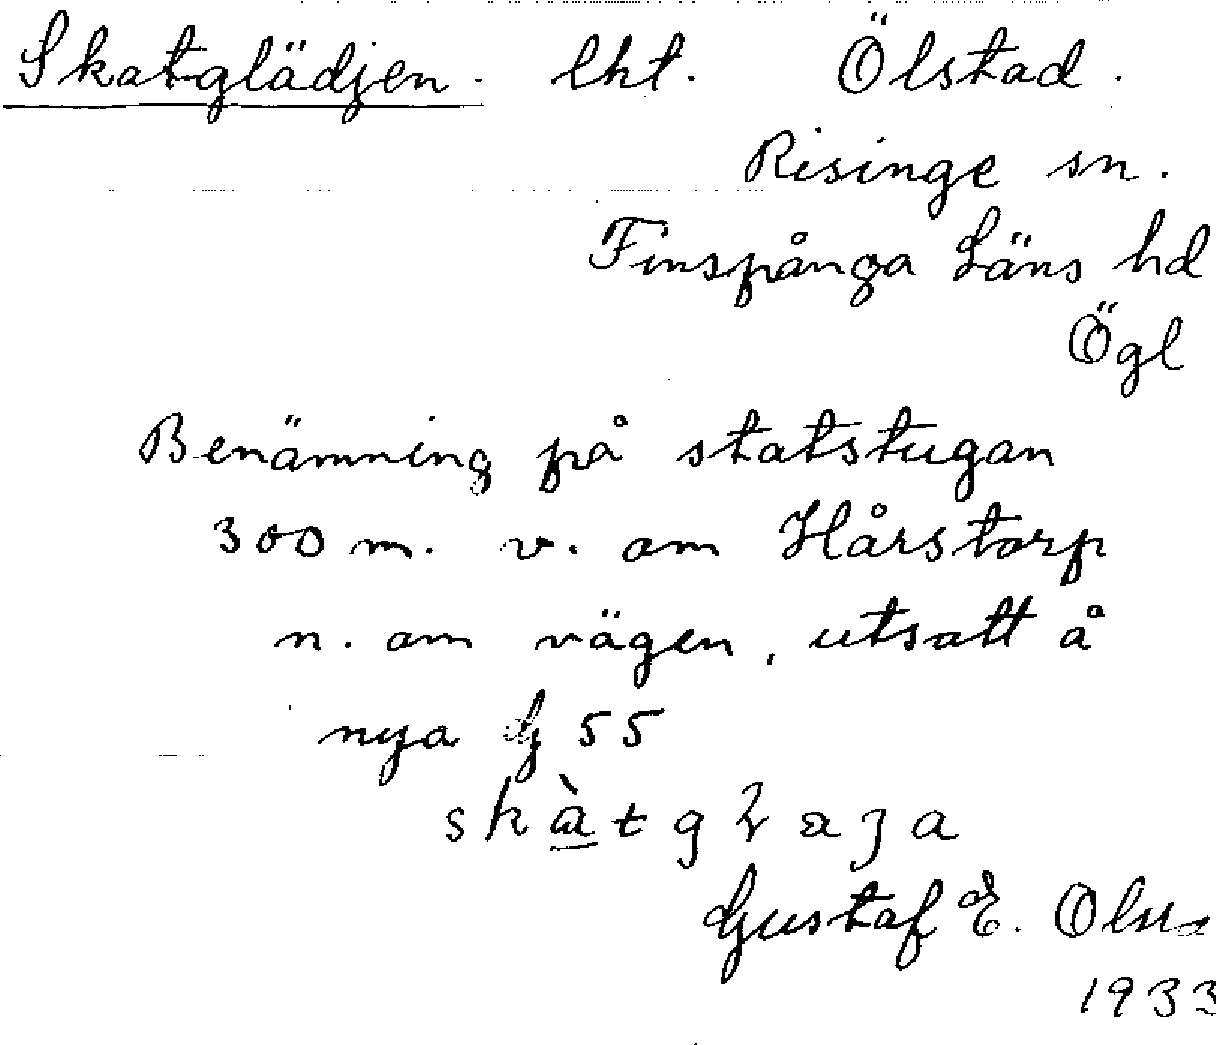 Skatglädjen. lht. Ölstad.
Risinge sn.
Finspånga Läns hd
Ögl
Benämning på statstugan
300 m. v. om Hårstorp
n. om vägen, utsatt å
nya G 55
Gustaf E. Olss
1933